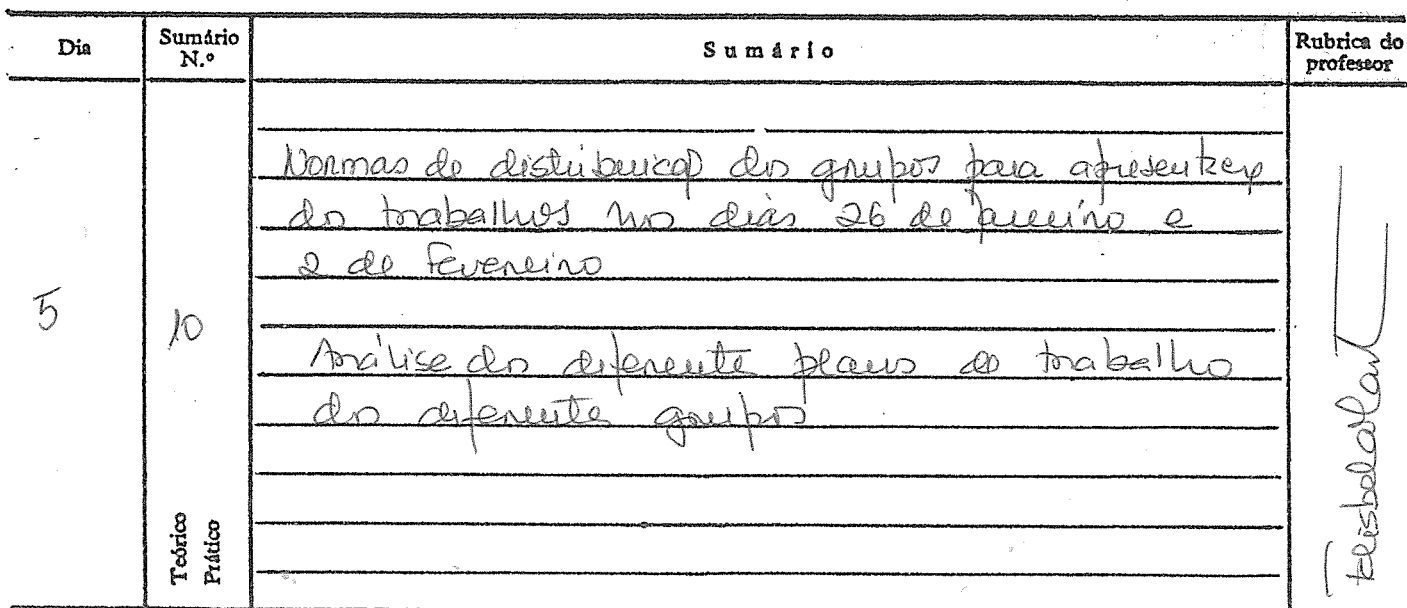 Dia
Sumário N.º
Sumário
Rubrica do professor
Normas de distribuição dos grupos para apresentação
dos trabalhos nos dias 26 de janeiro e
2 de Fevereiro
5
10
Análise dos diferentes planos de trabalho
dos diferentes grupos
Teórico
Prático